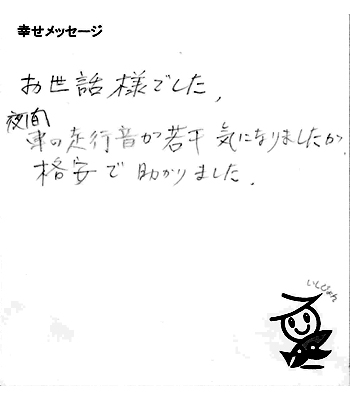 幸せメッセージ
お世話様でした,
夜間
車の走行音が若干気になりましたが
格安で助かりました.